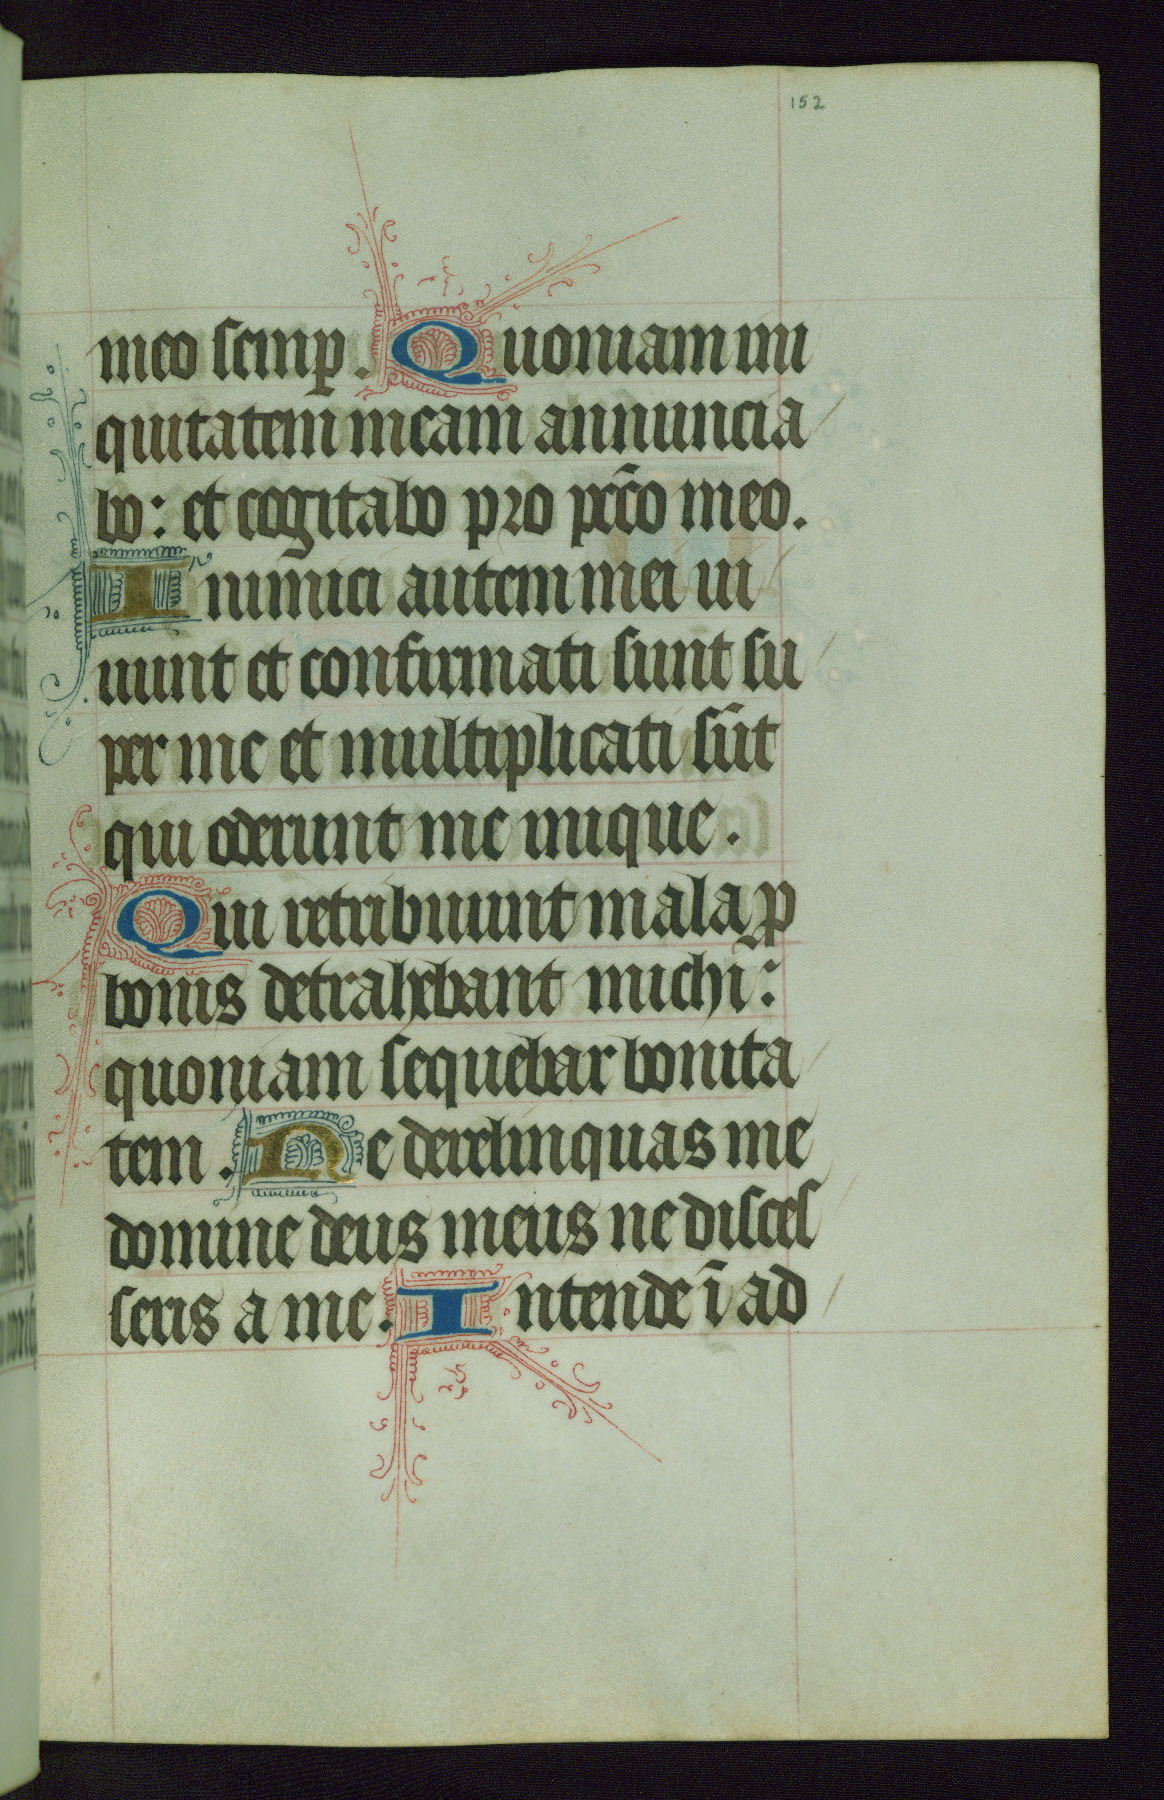 152
meo semꝑ. Quoniam ini
quitatem meam annuncia
bo: et cogitabo pro pctō meo.
Inimici autem mei ui
uunt et confirmati sunt su
per me et multiplicati sūt
qui oderunt me inique.
Qui retribuunt mala ꝓ
bonis detrahebant michi:
quoniam sequebar bonita
tem. Ne derelinquas me
domine deus meus ne disces
seris a me. Intende ī ad